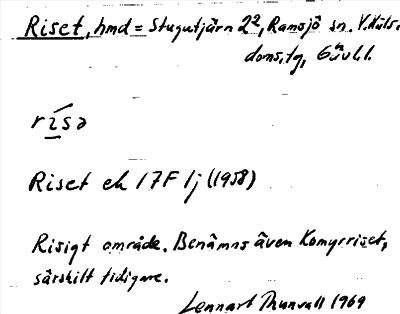 Riset, hmd = Stugutjärn 2², Ramsjö sn. V. Häls.
doms. tg,
rísə
Riset ek 17F 1j (1958)
Risigt område. Benämns även Komyrriset,
särskilt tidigare.
Lennart Thunvall 1969